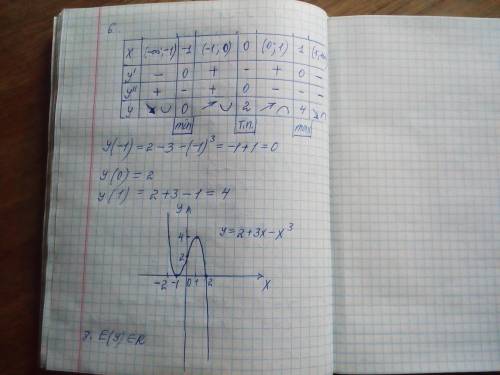 6.
x (-∞;-1) -1 (-1;0) 0 (0;1) 1 (1;+∞)
y' - 0 + - + 0 -
y'' + - + 0 - - -
y ↘ ∪ 0 ↗ ∪ 2 ↗ ∩ 4 ↘ ∩
min т.п. max
y(-1)=2-3-(-1)³=-1+1=0
y(0)=2
y(1)=2+3-1=4
y
4
y=2+3x-x³
2
-2 -1 0 1 2 x
7. E(y)∈R